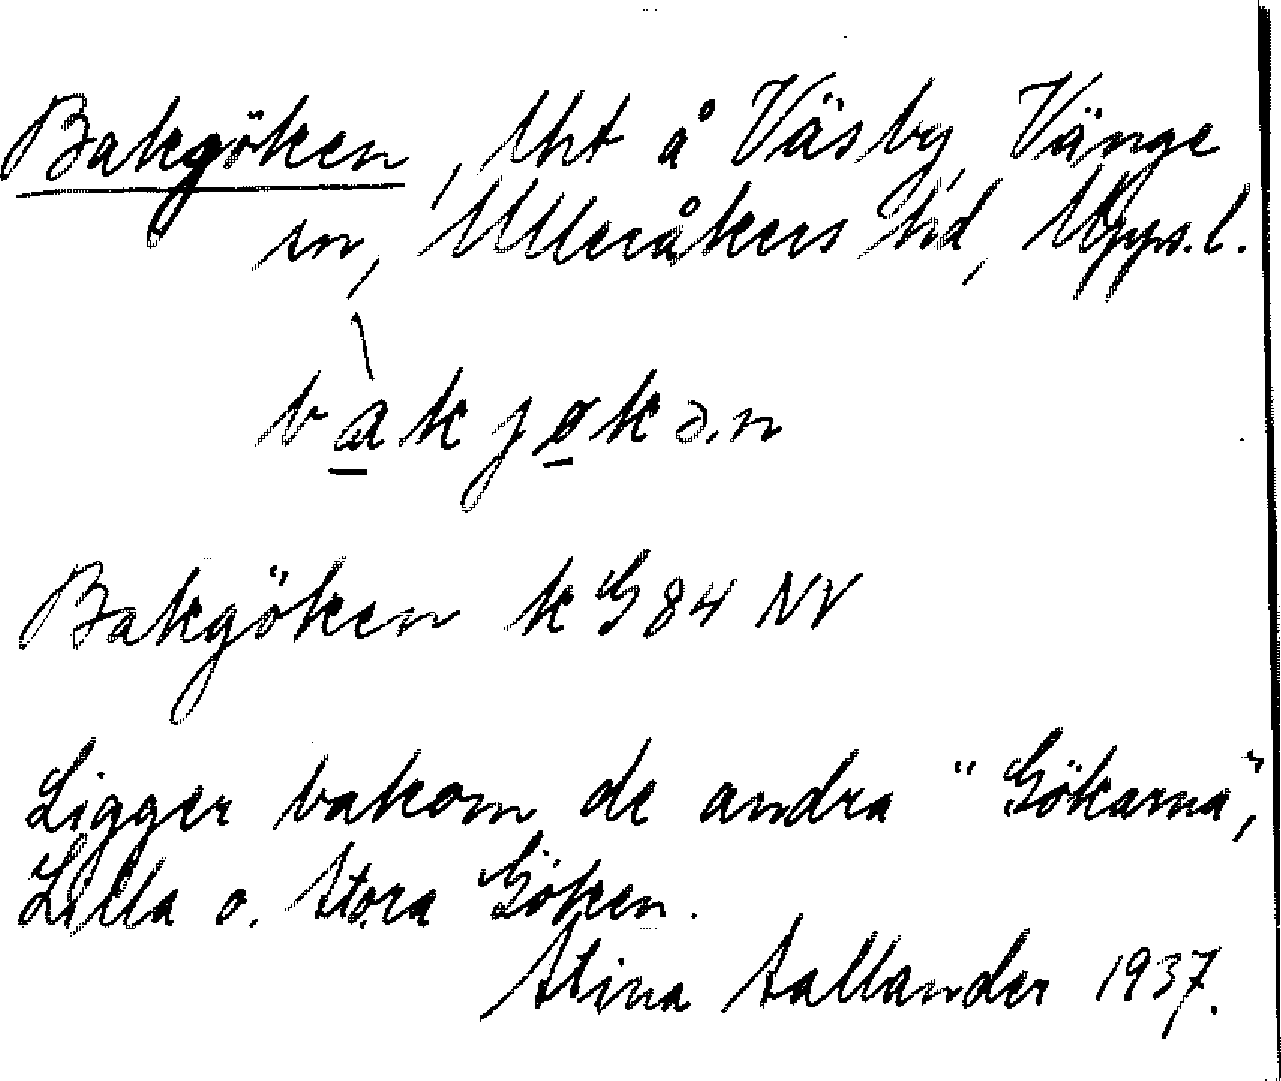 Bakgöken, tht å Väsby, Vänge
sn, Ulleråkers hd, Upps.l.
bàkjøkə.n
Bakgöken k G 84 NV
Ligger bakom de andra "Gökarna",
Lilla o. Stora Göken.
Stina Sallander 1937.